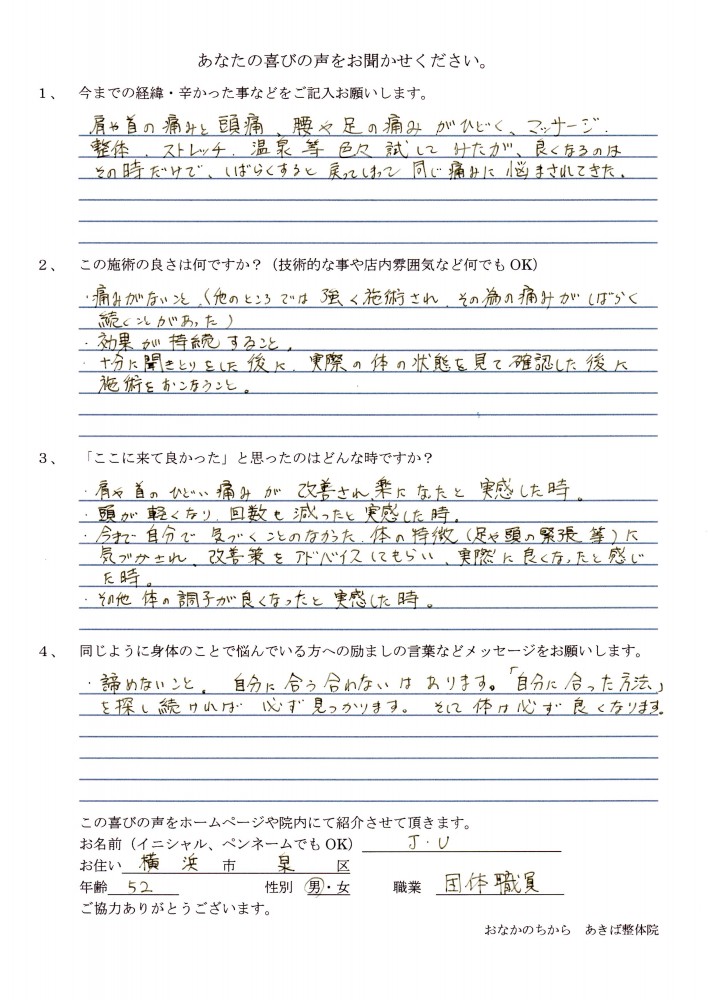 あなたの喜びの声をお聞かせください。
1、 今までの経緯・辛かった事などをご記入お願いします。
肩や首の痛みと頭痛、腰や足の痛みがひどく、マッサージ.
整体.ストレッチ.温泉等色々試してみたが、良くなるのは
その時だけで、しばらくすると戻ってしまって同じ痛みに悩まされてきた。
2、 この施術の良さは何ですか？（技術的な事や店内雰囲気など何でもOK）
・痛みがないこと.（他のところでは強く施術され.その為の痛みがしばらく
続くことがあった）
・効果が持続すること.
・十分に聞きとりをした後に.実際の体の状態を見て確認した後に
施術をおこなうこと。
3、 「ここに来て良かった」と思ったのはどんな時ですか？
・肩や首のひどい痛みが改善され、楽になったと実感した時。
・頭が軽くなり.回数も減ったと実感した時.
・今まで自分で気づくことのなかった.体の特徴（足や頭の緊張等）に
気づかされ、改善策をアドバイスしてもらい、実際に良くなったと感じ
た時。
・その他 体の調子が良くなったと実感した時。
4、 同じように身体のことで悩んでいる方への励ましの言葉などメッセージをお願いします。
・諦めないこと。 自分に合う合わないはあります。「自分に合った方法」
を探し続ければ必ず見つかります。そして体は必ず良くなります。
この喜びの声をホームページや院内にて紹介させて頂きます。
お名前（イニシャル、ペンネームでもOK） J・U
お住い 横浜 市 泉 区
年齢 52 性別 男・女 職業 団体職員
ご協力ありがとうございます。
おなかのちから あきば整体院